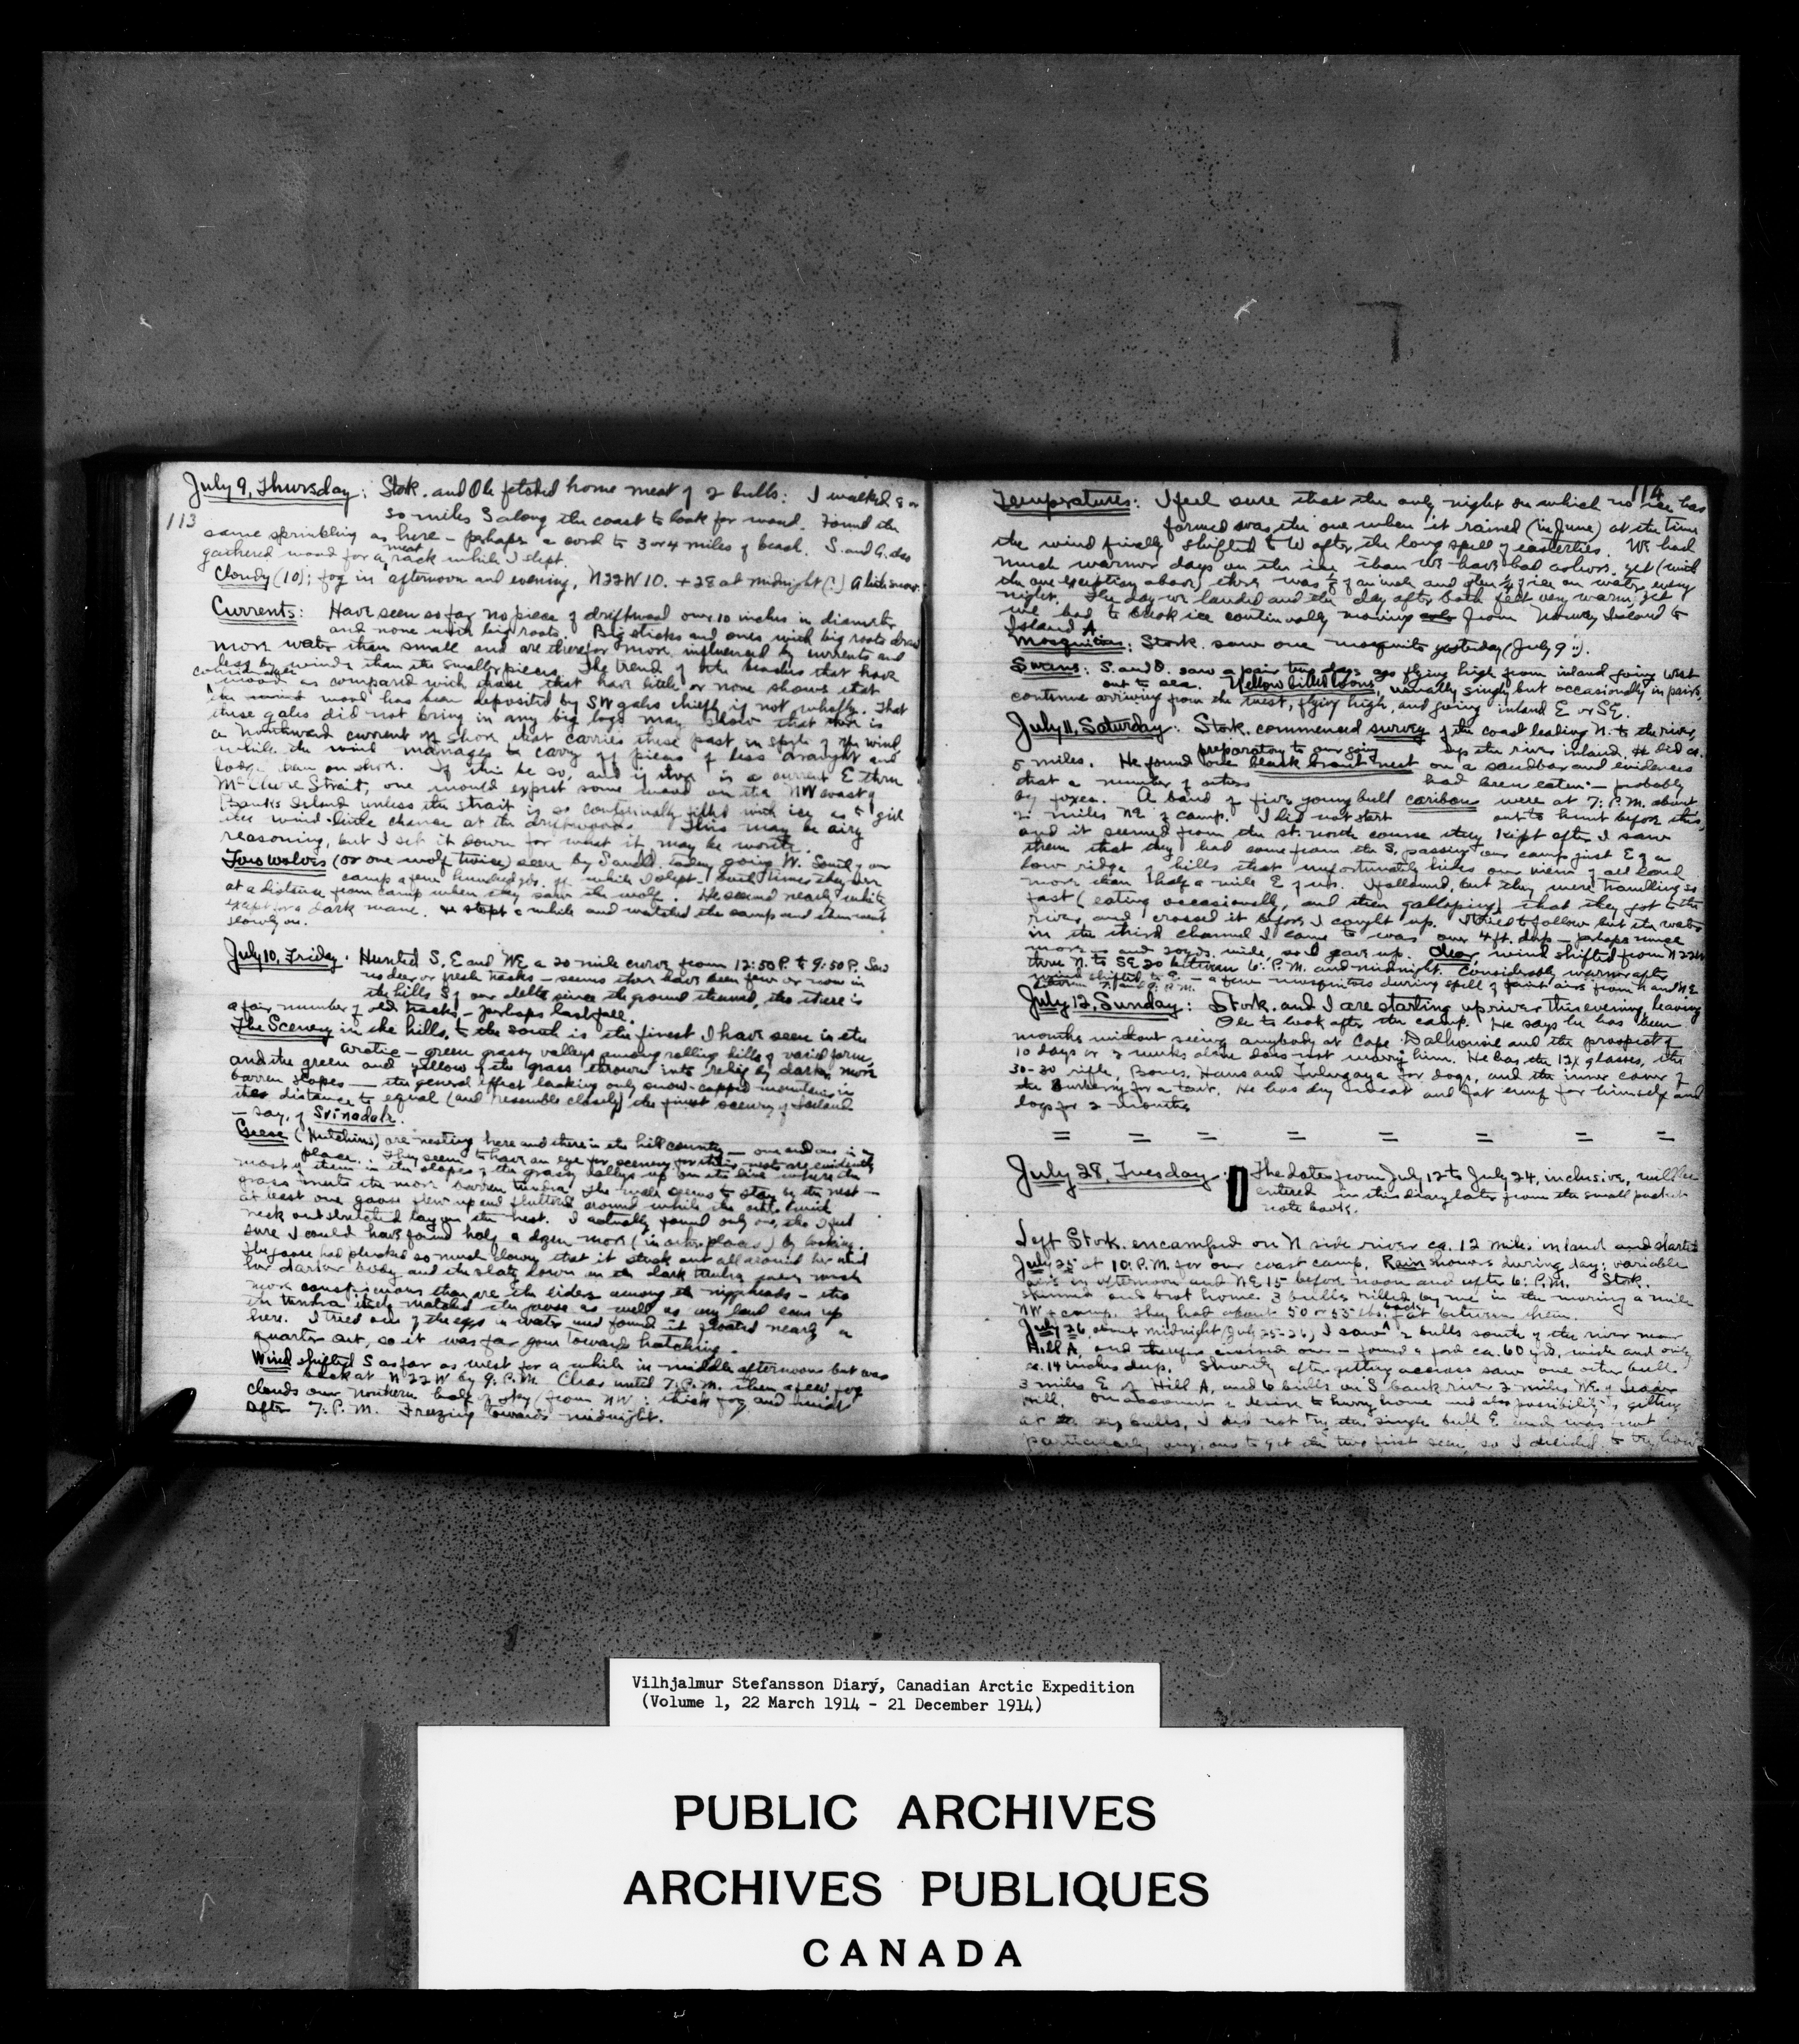 July 9, Thursday: Stork. and Ole fetched home meat of 2 bulls: I walked 8 or
113
so miles S along the coast to look for wood. Found the
same sprinkling as here – perhaps a cord to 3 or 4 miles of beach. S. and O. also
gathered wood for a meat rack while I slept.
Cloudy (10); fog in afternoon and evening, N22W 10. +28 at midnight (?) A little snow.
Currents: Have seen so far no piece of driftwood over 10 inches in diameter
and none with big roots. Big sticks and ones with big roots draw
more water than small and are therefor more influenced by currents and
less by winds than the smaller pieces. The trend of the beaches that have
considerable wood as compared with those that have little or none shows that
the wood has been deposited by SW gales chiefly if not wholly. That
these gales did not bring in any big logs may show that there is
a Northward current off shore that carries these past in spite of the wind
while the wind manages to carry pieces of less draught and
lodge them on shore. If this be so, and if there is a current E thru
McClure Strait, one would expect some wood on the NW coast of
Banks Island unless the strait is so continually filled with ice as to give
the wind little chance at the driftwood. This may be airy
reasoning, but I set it down for what it may be worth.
Two wolves (or one wolf twice) seen by S and O. today going W. South of our
camp a few hundred yds. off while I slept – both times they were
at a distance from camp when they saw the wolf. He seemed nearly white
except for a dark mane. He stopt a while and watched the camp and then went
slowly on.
July 10, Friday. Hunted S, E and NE a 20 mile curve from 12:50 P. to 9:50 P. Saw
no deer or fresh tracks – seems there have been few or none in
the hills S of our delta since the ground thawed, tho there is
a fair number of old tracks – perhaps last fall.
The Scenery in the hills to the south is the finest I have seen in the
arctic – green grassy valleys among rolling hills of varied form,
and the green and yellow of the grass thrown into relief by darker more
barren slopes – the general effect lacking only snow-capped mountains in
the distance to equal (and resemble closely) the finest scenery of Iceland
– say, of Svinadalr.
Geese (Hutchins) are nesting here and there in the hill country – one and one in a
place. They seem to have an eye for scenery for their nests are evidently
most of them in the slopes of the grassy valleys up on the line where the
grass meets the more barren tundra. The male seems to stay by the nest –
at least one goose flew up and fluttered around while the other with
neck outstretched lay on the nest. I actually found only one, tho I feel
sure I could have found half a dozen more (in other places) by looking.
The goose had plucked so much down that it stuck out all around her and
her darker body and the slaty down on the dark tundra were much
more conspicuous than are the eiders among the niggerheads – tho
the tundra itself matched the goose as well as any land can up
here. I tried one of the eggs in water and found it floated nearly a
quarter out, so it was far gone toward hatching.
Wind shifted S as far as west for a while in middle afternoon but was
back at N22W by 9: P.M. Clear until 7: P.M. then a few fog
clouds over northern half of sky from NW: thick fog and
after 7: P.M. Freezing towards midnight.
114
Temperatures: I feel sure that the only night on which no ice has
formed was the one when it rained (in June) at the time
the wind finally shifted to W after the long spell of easterlies. We had
much warmer days on the ice than we have had ashore, yet (with
the one exception above) there was ½ of an inch and often ¼ of ice on water every
night. The day we landed and the day after both felt very warm, yet
we had to chop ice continually moving from Norway Island to
Island A.
Mosquitoes: Stork. saw one mosquito yesterday (July 9th).
Swans: S. and O. saw a pair two days ago flying high from inland going west
out to sea. Yellow billed loons, usually singly but occasionally in pairs,
continue arriving from the west, flying high, and going inland E or SE.
July 11, Saturday: Stork. commenced survey of the coast leading N. to the river,
preparatory to our going up the river inland. He did ca.
5 miles. He found one black brant nest on a sandbar and evidences
that a number of others had been eaten – probably
by foxes. A band of five young bull caribou were at 7: P.M. about
2 miles NE of camp. I did not start out to hunt before this,
and it seemed from the st. north course they kept after I saw
them that they had come from the S, passing our camp just E of a
low ridge of hills that unfortunately hides our view of all land
more than half a mile E of us. I followed, but they were travelling so
fast (eating occasionally, and then galloping) that they got to the
river and crossed it before I caught up. I tried to follow but the water
in the third channel I came to was over 4 ft. deep – perhaps much
more – and 200 yds. wide, so I gave up. Clear, wind shifted from N22W
thru N. to SE 20 between 6: P.M. and midnight. Considerably warmer after
wind shifted to E – a few mosquitoes during spell of faint airs from N and NE
between 7 and 9 P.M.
July 12, Sunday: Stork. and I are starting up river this evening, leaving
Ole to look after the camp. He says he has been
months without seeing anybody at Cape Dalhousie and the prospect of
10 days or 2 weeks alone does not worry him. He has the 12x glasses, the
30-30 rifle, Bones, Hans and for dogs, and the inner cover of
the Burberry for a tent. He has dry meat and fat enuf for himself and
dogs for 2 months
= = = = = = = =
July 28, Tuesday: The dates from July 12 to July 24, inclusive, will be
entered in this diary later from the small pocket
note book.
Left Stork. encamped on N side river ca. 12 miles inland and started
July 25 at 10: P.M. for our coast camp. Rain showers during day: variable
airs in afternoon and NE 15 before noon and after 6: P.M. Stork.
skinned and brot home 3 bulls killed by me in the morning a mile
NW of camp. They had about 50 or 55 lbs. back fat between them.
July 26, about midnight (July 25-26) I saw 2 bulls south of the river near
Hill A, and therefor crossed over – found a ford ca. 60 yds. wide and only
ca. 14 inches deep. Shortly after getting across saw one other bull
3 miles E of Hill A, and 6 bulls on S bank river 2 miles NE of Leader
Hill. On account of desire to hurry home and also possibility of getting
at the six bulls, I did not try the single bull E and was not
particularly anxious to get the two first seen, so I decided to try how
Vilhjalmur Stefansson Diary, Canadian Arctic Expedition
(Volume 1, 22 March 1914 - 21 December 1914)
PUBLIC ARCHIVES
ARCHIVES PUBLIQUES
CANADA